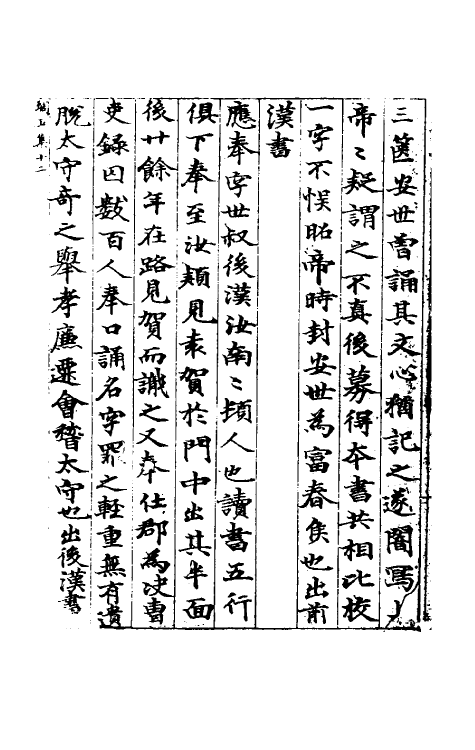 三篋安世曾誦其文心猶記之遂闇寫上
帝〻疑謂之不真後募得本書共相比校
一字不悮昭帝時封安世為富春侯也出前
漢書
應奉字世叔後漢汝南〻頓人也讀書五行
俱下奉至汝頴見袁賀於門中出其半面
後廿餘年在路見賀而識之又奉仕郡為决曹
史録囚數百人奉口誦名字罪之軽重無有遺
脫太守奇之舉孝廉遷會稽太守也出後漢書
玉集十二